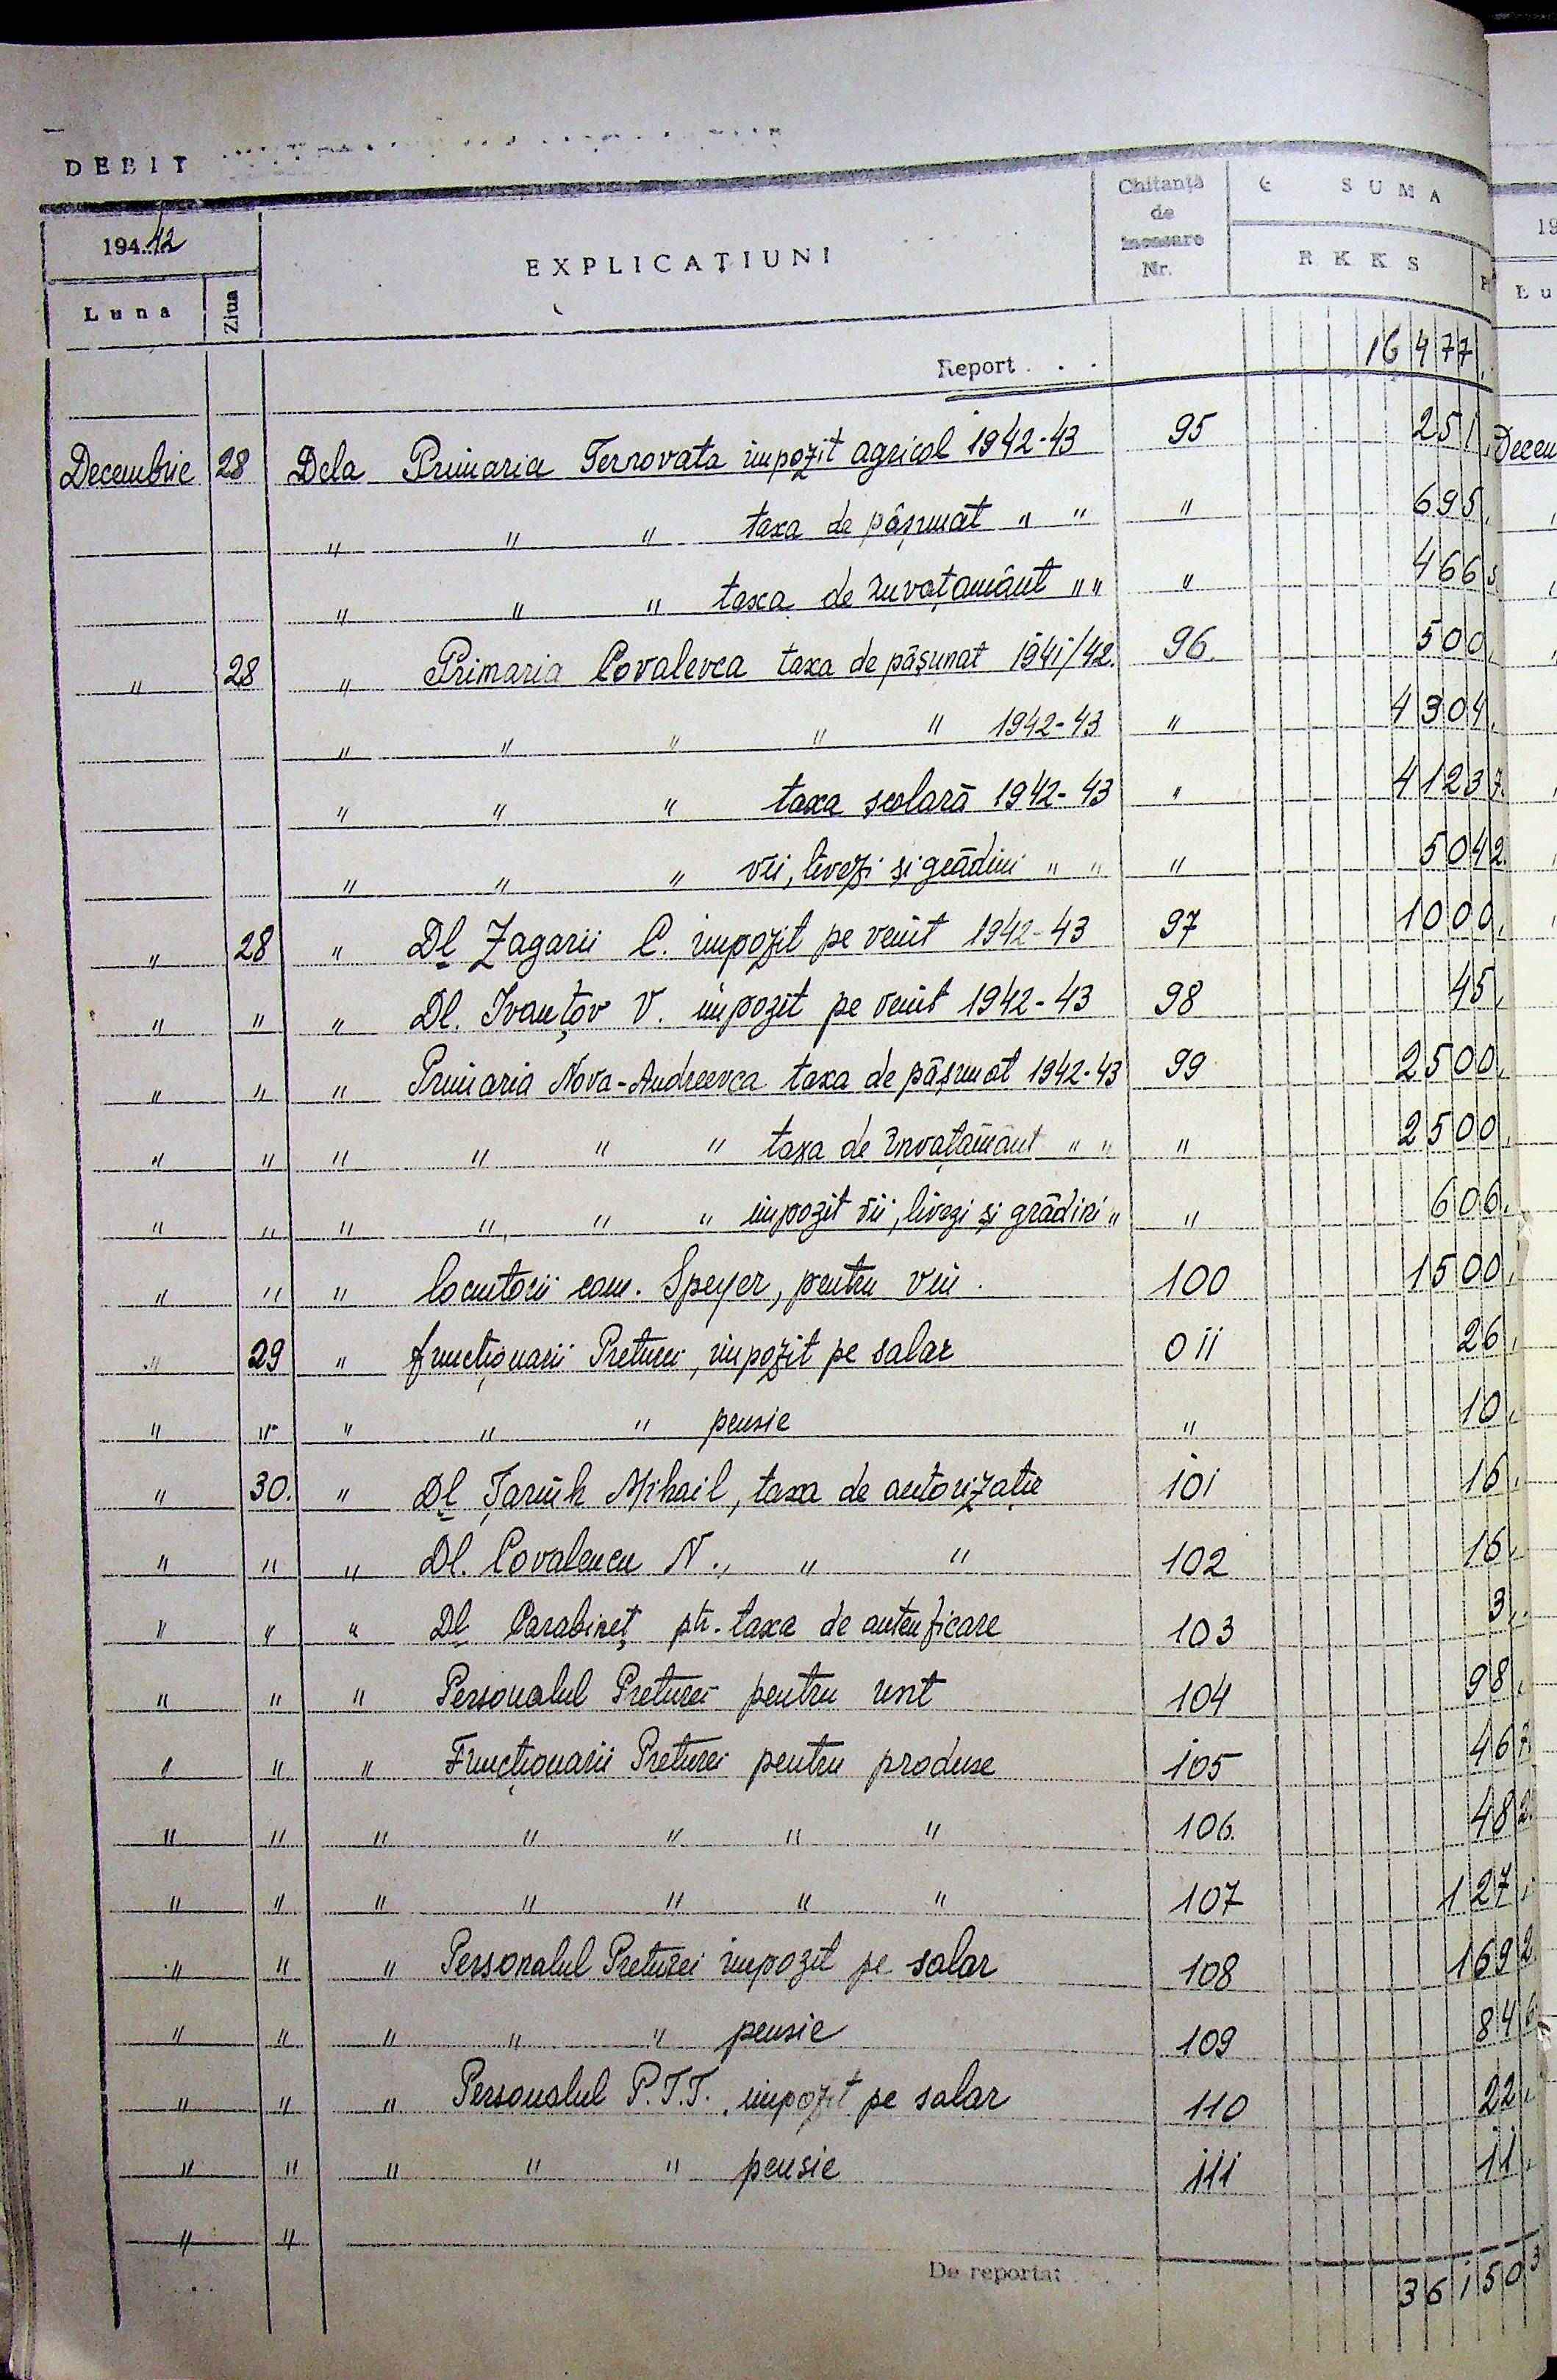 DEBIT
194.42
Luna
Ziua
EXPLICAȚIUNI
Chitanță
de
încasare
Nr.
SUMA
RKKS
Report . . . 16477,
Decembrie 28 Dela Primaria Ternovata impozit agricol 1942-43 95 251,
" " " taxa de pășunat " " " 695,
" " " taxa de învațamânt " " " 466 5
" 28 " Primaria Covalevca taxa de pășunat 1941/42. 96. 500,
" " " " " 1942-43 " 4304,
" " " taxa școlară 1942-43 " 4123 7.
" " " vii, livezi și grădini " " " 504 2.
" 28 " Dl Zagarii C. impozit pe venit 1942-43 97 1000,
" " " Dl. Ivanțov V. impozit pe venit 1942-43 98 45,
" " " Primaria Nova-Andreevca taxa de pășunat 1942-43 99 2500,
" " " " " " taxa de învațamânt " " " 2500,
" " " " " " impozit vii, livezi și grădini " " 606,
" " " locuitorii com. Speyer, pentru vin. 100 1500,
" 29 " funcționarii Preturei, impozit pe salar 011 26,
" " " " " pensie " 10,
" 30. " Dl Țariuk Mihail, taxa de autorizație 101 16,
" " " Dl. Covalencu N., " " 102 16,
" " " Dl Carabineț ptr. taxa de autenficare 103 3,
" " " Personalul Preturei pentru unt 104 98,
" " " Funcționarii Preturei pentru produse 105 46 7.
" " " " " " " 106. 48 2.
" " " " " " " 107 127,
" " " Personalul Preturei impozit pe salar 108 169 2.
" " " " " pensie 109 84 6.
" " " Personalul P.T.T. impozit pe salar 110 22,
" " " " " pensie 111 11,
" "
De reportat . . . 36150 3
19
Lu
Decem